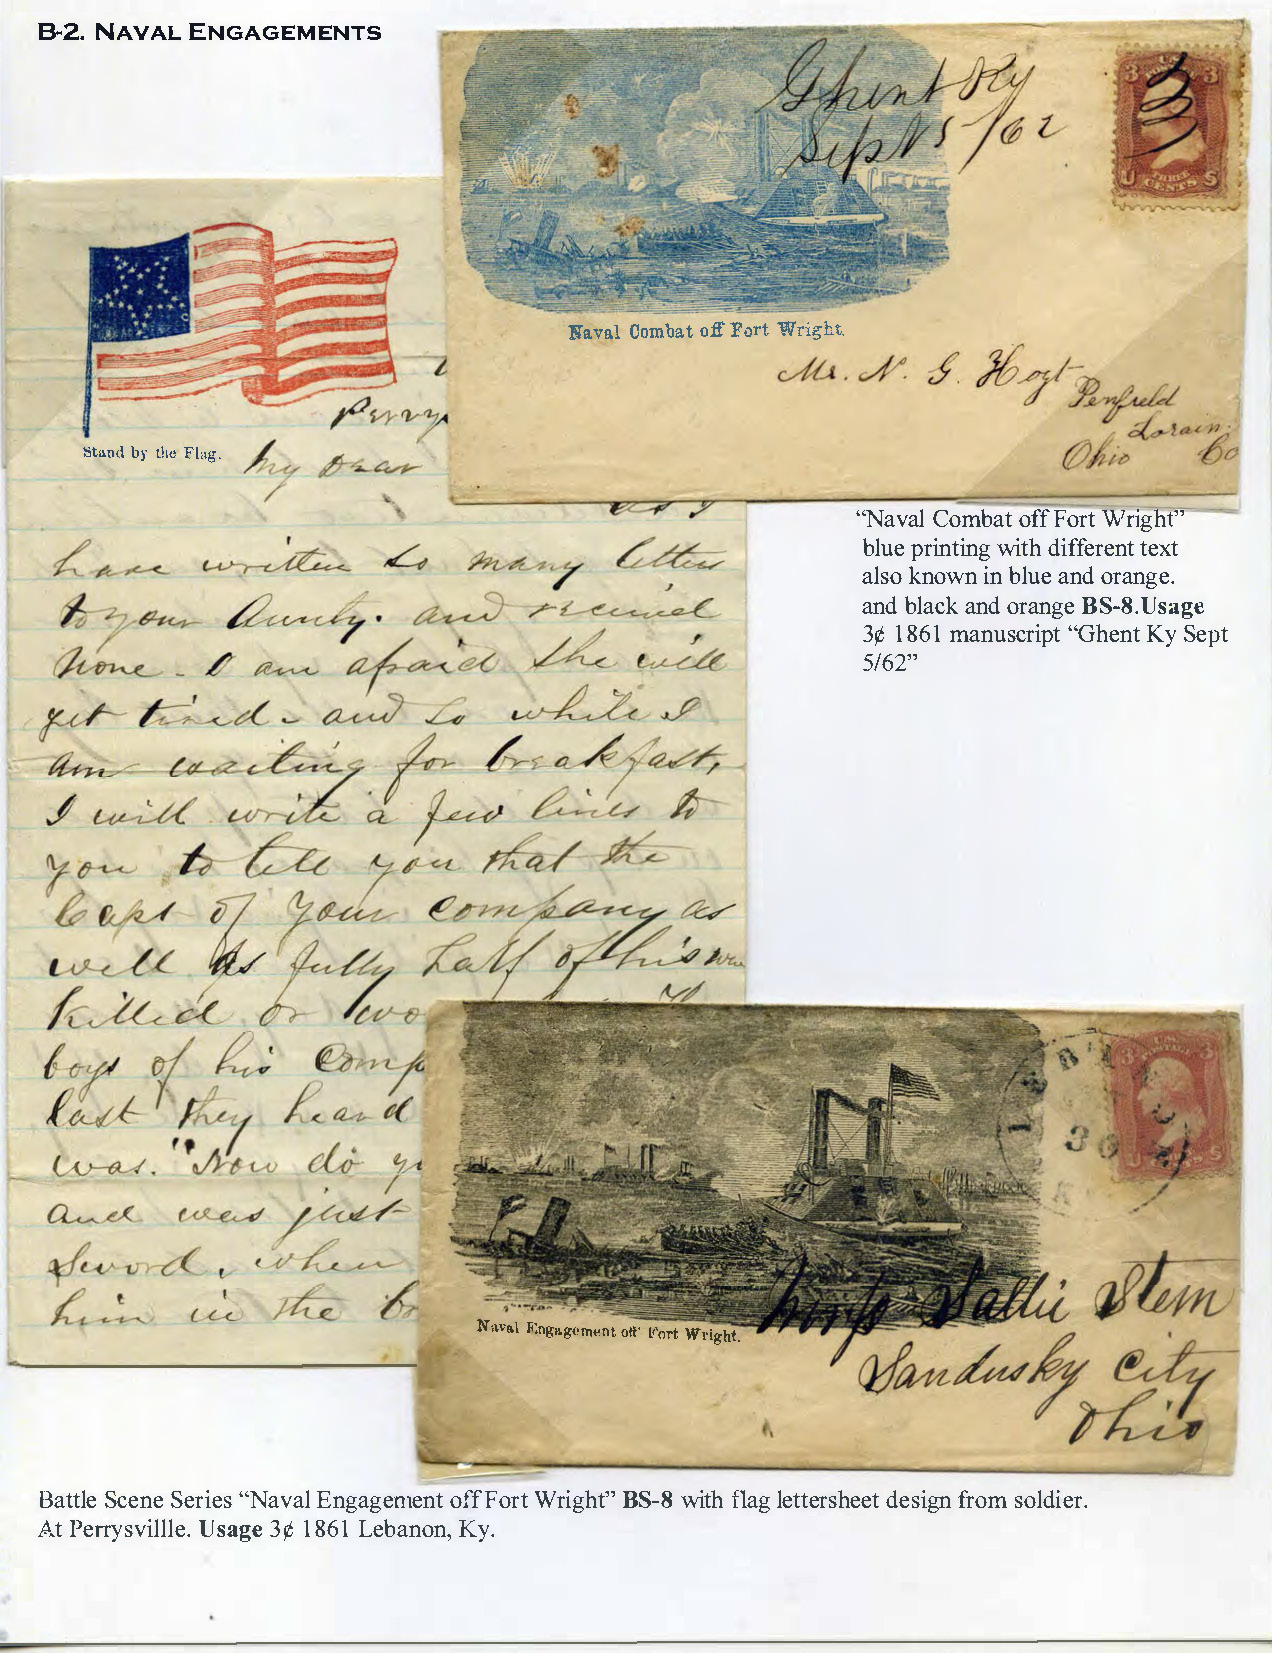 B-2. NAVAL ENGAGEMENTS
Ghent Ky
Sept 5/62
3 U.S. 3
U THREE CENTS S
Naval Combat off Fort Wright.
Mr. N. G. Hoyt
Penfield
Lorain
Ohio Co
Stand by the Flag.
Perry
My dear
as I
have written so many letters
to your Aunty. and received
none - I am afraid she will
get tired - and so while I
am waiting for breakfast,
I will write a few lines to
you to tell you that the
Capt of your company as
well as fully half of his
killed or wo
boys of his comp
last they heard
was. "Now do y
and was just
Sword, when
him in the br
"Naval Combat off Fort Wright"
blue printing with different text
also known in blue and orange.
and black and orange BS-8.Usage
3¢ 1861 manuscript "Ghent Ky Sept
5/62"
3 U.S. POSTAGE 3
30
Naval Engagement off Fort Wright.
Sallie Stem
Sandusky City
Ohio
Battle Scene Series "Naval Engagement off Fort Wright" BS-8 with flag lettersheet design from soldier.
At Perrysvillle. Usage 3¢ 1861 Lebanon, Ky.